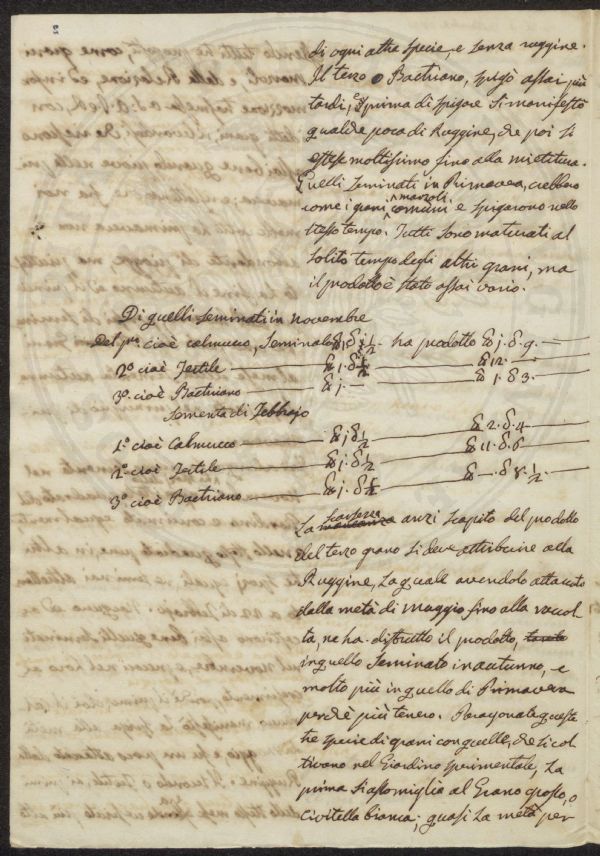 di ogni altra specie, e senza ruggine.
Il terzo o Bactriano, spigò assai più
tardi, e prima di spigare si manifestò
qualche poca di Ruggine, che poi si
estese moltissimo sino alla mietitura.
Quelli seminati in Primavera, crebbero
come i grani comuni marzoli e spigarono nello
stesso tempo. Tutti sono maturati al
solito tempo degli altri grani, ma
il prodotto è stato assai vario.
Di quelli seminati in novembre
Del pmo cioè calmucco, seminate j. ½ - ha prodotto j. 9. —
2o cioè Textile — 1. ½ — 12. —
3o cioè Bactriano — j. — 1. 3. —
Sementa di Febbrajo
1o cioè Calmucco — j ½ — 2. 4 —
2o cioè Textile — j. ½ — 11. 6 —
3o cioè Bactriano — j. — ½. —
La scarsezza mancanza anzi scapito del prodotto
del terzo grano si deve attribuire alla
Ruggine, la quale avendolo attaccato
dalla metà di maggio fino alla raccol-
ta, ne ha distrutto il prodotto,
in quello seminato in autunno, e
molto più in quello di Primavera
perchè più tenero. Paragonate queste
tre specie di grani con quelle, che si col
tivano nel Giardino sperimentale, La
prima si assomiglia al Grano grosso, o
civitella bianca; quasi la metà per